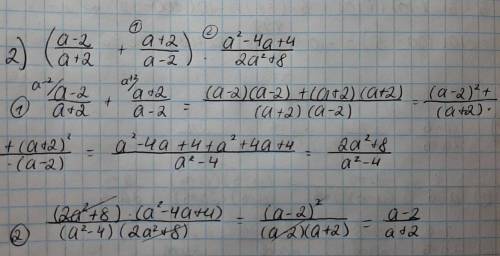 2) ( (a-2)/(a+2) +① (a+2)/(a-2) ) ·② (a²-4a+4)/(2a²+8)
① ᵃ⁻²/ (a-2)/(a+2) + ᵃ⁺²/ (a+2)/(a-2) = ((a-2)(a-2) + (a+2)(a+2))/((a+2)(a-2)) = ((a-2)²+)/((a+2)·)
(+(a+2)²)/(·(a-2)) = (a²-4a+4+a²+4a+4)/(a²-4) = (2a²+8)/(a²-4)
② ((2a²+8)·(a²-4a+4))/((a²-4)(2a²+8)) = (a-2)²/((a-2)(a+2)) = (a-2)/(a+2)